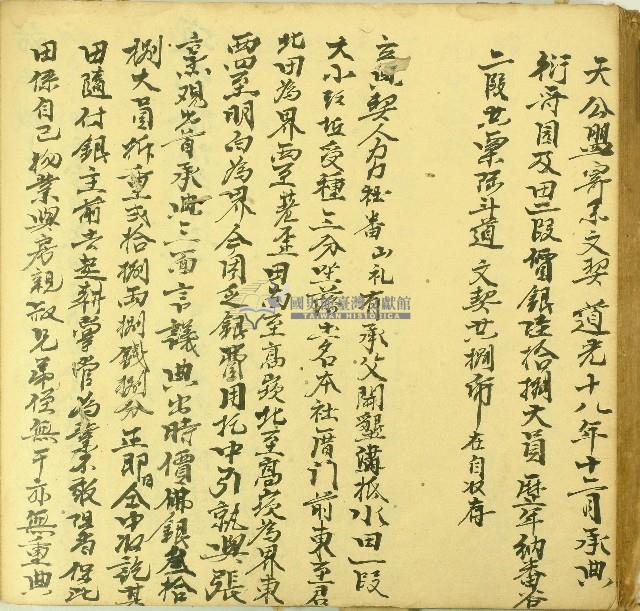 天公盟寄系文契 道光十八年十二月承典
衍 園及田二段價銀陸拾捌大員 歷年納番谷
二段共栗 斗道 文契共捌紙在自收存
立 契人 力社番山礼 有承父開墾 水田一段
大小 坵受種三分 坐 土名本社厝门前東至君
北田為界西至 田南至高崁北至高崁為界東
西四至明白為界今因乏銀費用托中引就與張
観 首承 三面言議典出時價佛銀叁拾
捌大員折重弍拾捌両捌錢捌分正即日仝中收訖其
田隨付銀主前去起耕掌管為業不敢阻 保此
田係自己物業與房親叔兄弟侄無干亦無重典
國史館臺灣文獻館
TAIWAN HISTORICA